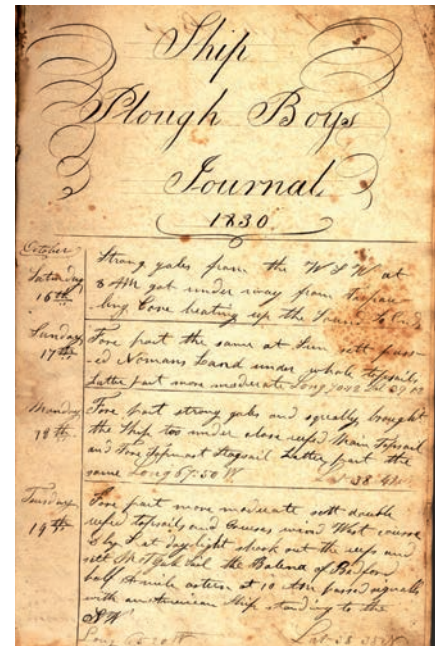 Ship
Plough Boys
Journal
1830
October
Saturday 16th
Strong gales from the W S W at
8 AM got under way from Tarpau-
ling Cove beating up the Sound
Sunday 17th
Fore part the same at Sun sett pass-
ed Nomans Land under whole topsails
Latter part more moderate Long 70 42 Lat 39 02
Monday 18th
Fore part strong gales and squally brought
the Ship too under close reefd Main topsail
and Fore topmast Staysail Latter part the
same Long 67-50 W
Tuesday 19th
Fore part more moderate sett double
reefed topsails and Courses wind West course
at daylight shook out the reefs and
sett the Balena of Bedford
half A mile astern at 10 AM passd signals
with an American Ship standing to the
S W
Long W Lat 38